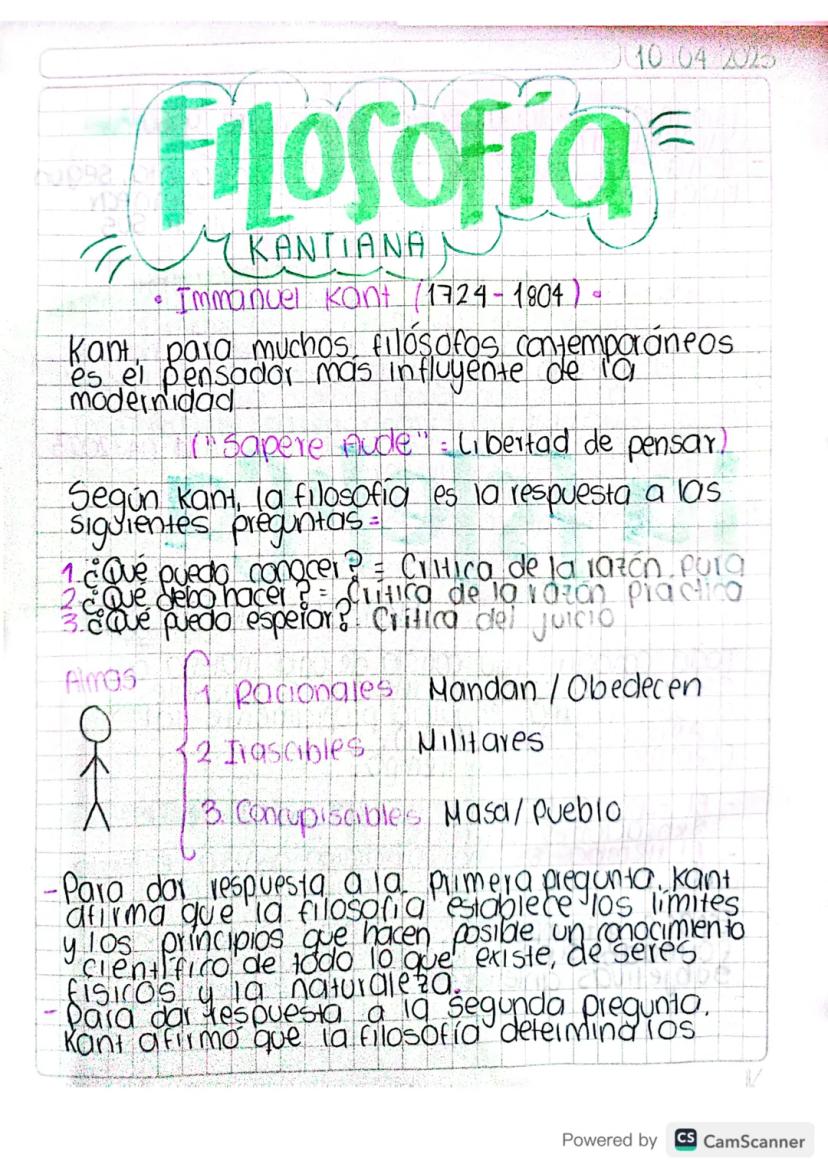 10 04 2023
Filosofía
KANTIANA
• Immanuel Kant (1724-1804) •
Kant, para muchos filósofos contemporáneos
es el pensador más influyente de la
modernidad
("Sapere Aude" = Libertad de pensar)
Según Kant, la filosofía es la respuesta a las
siguientes preguntas =
1. ¿Qué puedo conocer? = Critica de la razón pura
2. ¿Qué debo hacer? = Critica de la razón practica
3. ¿Qué puedo esperar? Critica del juicio
Almas
1 Racionales Mandan / Obedecen
2 Irascibles Militares
3. Concupiscibles Masa / Pueblo
- Para dar respuesta a la primera pregunta, Kant
afirma que la filosofía establece los limites
y los principios que hacen posible un conocimiento
científico de todo lo que existe, de seres
físicos y la naturaleza.
- Para dar respuesta a la segunda pregunta,
Kant afirmó que la filosofía determina los
Powered by CS CamScanner